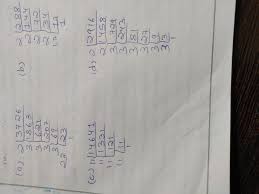 (a) 2 | 3726
3 | 1863
3 | 621
3 | 207
3 | 69
23 | 23
1
(b) 2
2
2 | 72
2
2
(c) 11 | 14641
11 | 1331
11 | 121
11 | 11
1
(d) 2 | 2916
2 | 1458
3 | 729
3 | 243
3 | 81
3 | 27
3 | 9
3 | 3
1